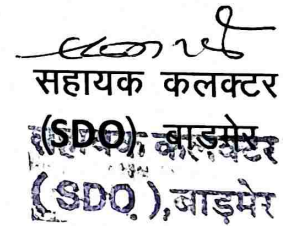 सहायक कलक्टर
(SDO), बाडमेर
सहायक कलक्टर
(SDO), बाड़मेर